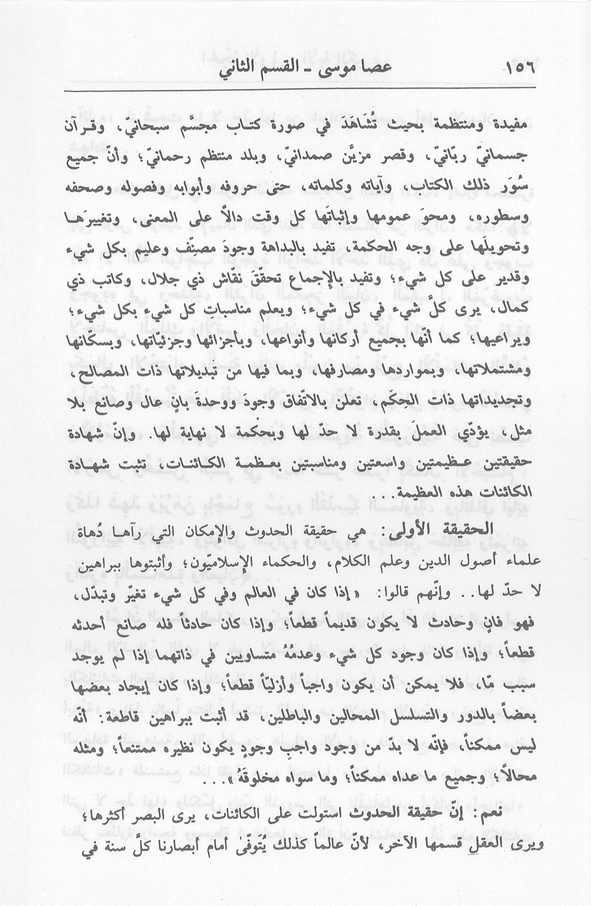 ١٥٦ عصا موسى ـ القسم الثاني
مفيدة ومنتظمة بحيث تُشَاهَدَ في صورة كتـاب مجسَّم سبحانيّ، وقـرآن
جسمانيّ ربّانيّ، وقصر مزيَّن صمدانيّ، وبلد منتظم رحمانيّ؛ وأنّ جميع
سُوَر ذلك الكتاب، وآياته وكلماته، حتى حروفه وأبوابه وفصوله وصحفه
وسطوره، ومحوَ عمومها وإثباتَها كل وقت دالاًّ على المعنى، وتغييرَهـا
وتحويلَها على وجه الحكمة، تفيد بالبداهة وجودَ مصنِّف وعليم بكل شيء
وقدير على كل شيء؛ وتفيد بالإجماع تحقّقَ نقّاش ذي جلال، وكاتب ذي
كمال، يرى كلَّ شيء في كل شيء؛ ويعلم مناسباتِ كل شيء بكل شيء؛
ويراعيها؛ كما أنّها بجميع أركانها وأنواعها، وبأجزائها وجزئيّاتها، وبسكّانها
ومشتملاتها، وبمواردها ومصارفها، وبما فيها من تبديلاتها ذات المصالح،
وتجديداتها ذات الحِكَم، تعلن بالاتّفاق وجودَ ووحدةَ بانٍ عال وصانع بلا
مثل، يؤدّي العملَ بقدرة لا حدّ لها وبحكمة لا نهاية لها. وإنّ شهادة
حقيقتين عـظيمتين واسعتين ومناسبتين بعـظمـة الكـائنـات، تثبت شهـادة
الكائنات هذه العظيمة...
الحقيقة الأولى: هي حقيقة الحدوث والإمكان التي رآهـا دُهاة
علماء أصول الدين وعلم الكلام، والحكماء الإسلاميّون؛ وأثبتوها ببراهين
لا حدّ لها.. وإنّهم قالوا: «إذا كان في العالم وفي كل شيء تغيّر وتبدّل،
فهو فانٍ وحادث لا يكون قديماً قطعاً؛ وإذا كان حادثاً فله صانع أحدثه
قطعاً؛ وإذا كان وجود كل شيء وعدمُهُ متساويين في ذاتهما إذا لم يوجد
سبب مّا، فلا يمكن أن يكون واجباً وأزليّاً قطعاً؛ وإذا كان إيجاد بعضها
بعضاً بالدور والتسلسل المحالين والباطلين، قد أثبت ببراهين قاطعة: أنّه
ليس ممكناً، فإنّه لا بدّ من وجود واجبِ وجودٍ يكون نظيره ممتنعاً؛ ومثله
محالاً؛ وجميع ما عداه ممكناً؛ وما سواه مخلوقهُ»...
نعم: إنّ حقيقة الحدوث استولت على الكائنات، يرى البصر أكثرها؛
ويرى العقل قسمها الآخر، لأنّ عالماً كذلك يُتَوفّىٰ أمام أبصارنا كلّ سنة في